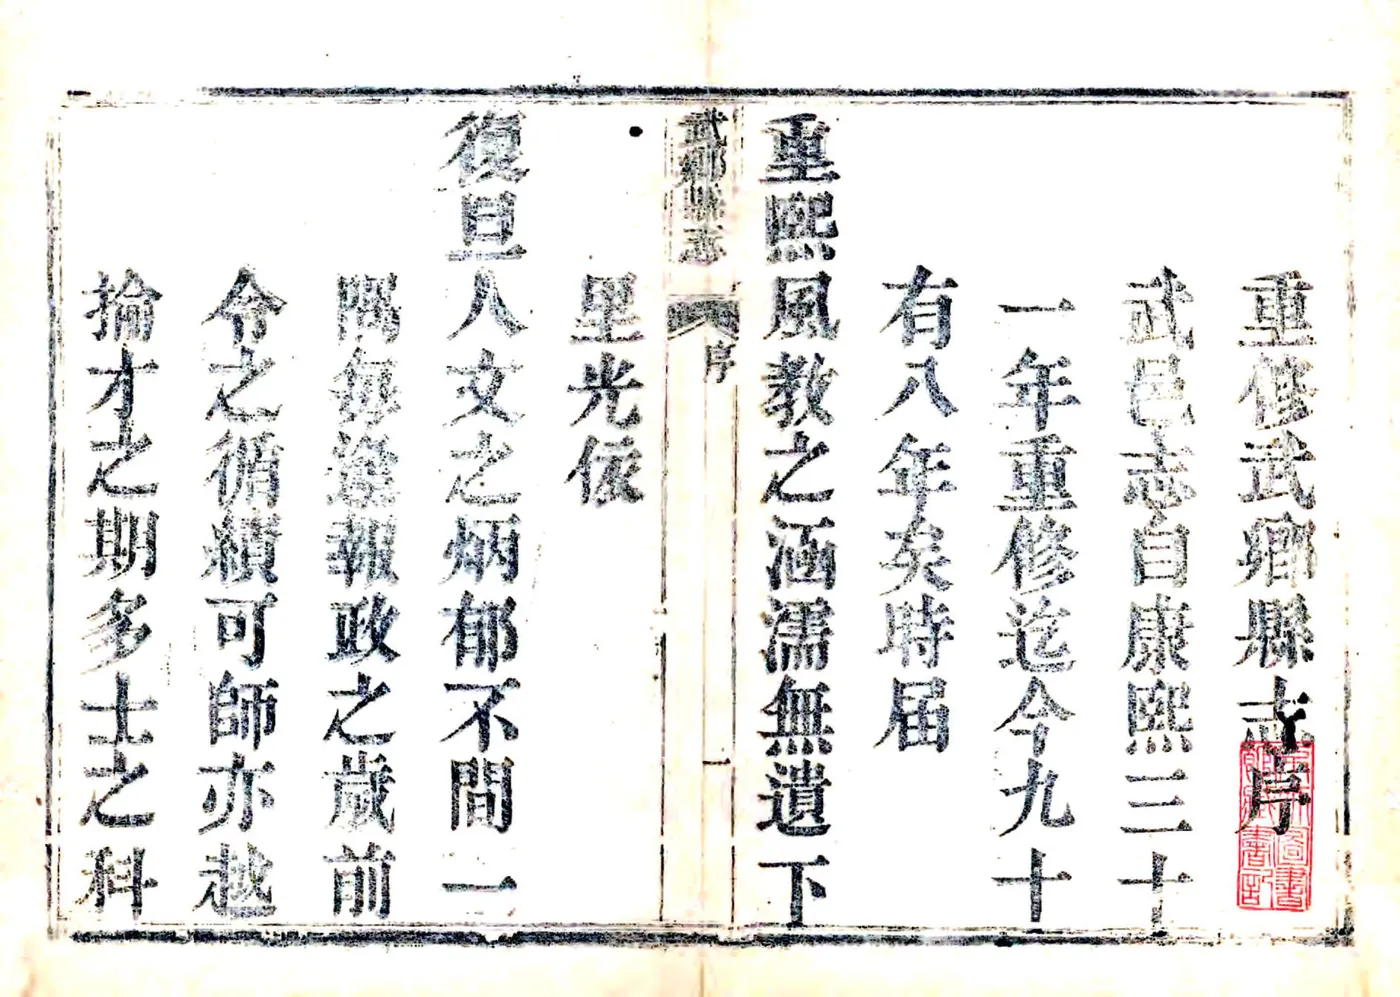 重修武鄉縣志序
武邑志自康熙三十
一年重修迄今九十
有八年矣時届
重熙風教之涵濡無遺下
武鄉縣志
序
一
里光依
復旦人文之炳郁不間一
隅每逢報政之歲前
令之循績可師亦越
掄才之期多士之科